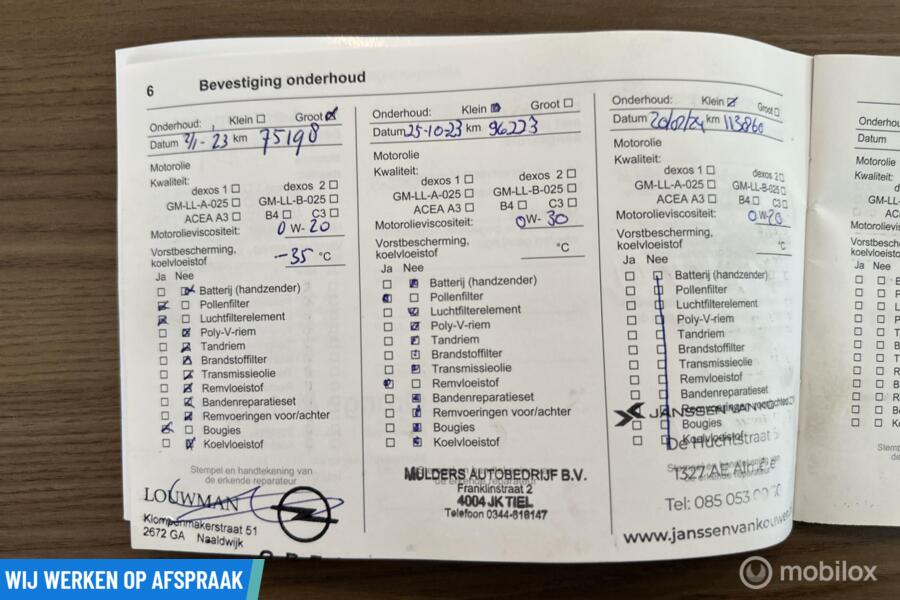 6 Bevestiging onderhoud
Onderhoud: Klein Groot
Datum 2/1-23 km 75198
Motorolie
Kwaliteit:
dexos 1 dexos 2
GM-LL-A-025 GM-LL-B-025
ACEA A3 B4 C3
Motorolieviscositeit: 0 W- 20
Vorstbescherming,
koelvloeistof -35 °C
Ja Nee
Batterij (handzender)
Pollenfilter
Luchtfilterelement
Poly-V-riem
Tandriem
Brandstoffilter
Transmissieolie
Remvloeistof
Bandenreparatieset
Remvoeringen voor/achter
Bougies
Koelvloeistof
Stempel en handtekening van
de erkende reparateur
LOUWMAN
Klompenmakerstraat 51
2672 GA Naaldwijk
Onderhoud: Klein Groot
Datum 25-10-23 km 96223
Motorolie
Kwaliteit:
dexos 1 dexos 2
GM-LL-A-025 GM-LL-B-025
ACEA A3 B4 C3
Motorolieviscositeit: 0W- 30
Vorstbescherming,
koelvloeistof °C
Ja Nee
Batterij (handzender)
Pollenfilter
Luchtfilterelement
Poly-V-riem
Tandriem
Brandstoffilter
Transmissieolie
Remvloeistof
Bandenreparatieset
Remvoeringen voor/achter
Bougies
Koelvloeistof
MULDERS AUTOBEDRIJF B.V.
Franklinstraat 2
4004 JK TIEL
Telefoon 0344-616147
Onderhoud: Klein Groot
Datum 20/02/24 km 113860
Motorolie
Kwaliteit:
dexos 1 dexos 2
GM-LL-A-025 GM-LL-B-025
ACEA A3 B4 C3
Motorolieviscositeit: 0 W-20
Vorstbescherming,
koelvloeistof °C
Ja Nee
Batterij (handzender)
Pollenfilter
Luchtfilterelement
Poly-V-riem
Tandriem
Brandstoffilter
Transmissieolie
Remvloeistof
Bandenreparatieset
Remvoeringen voor/achter
Bougies
Koelvloeistof
JANSSEN VAN
De Huchtstraat
1327 AE
Tel: 085 053
www.janssenvankouwen
Datum
Motorolie
Kwaliteit:
Ja Nee
WIJ WERKEN OP AFSPRAAK
mobilox